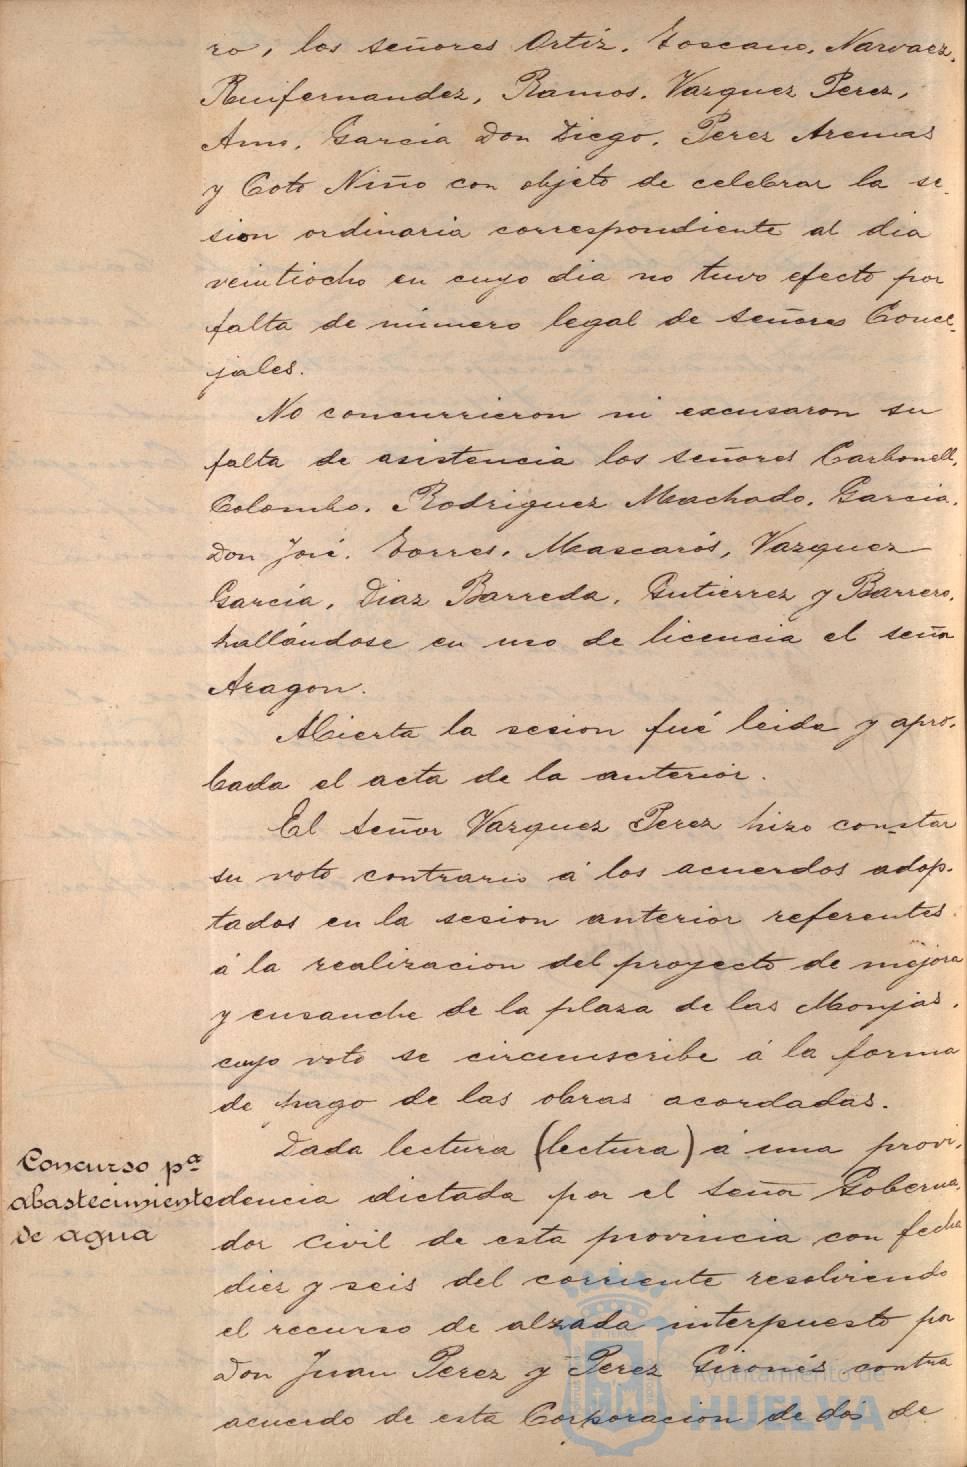 ro, los señores Ortiz. Toscano. Narvaez.
Ruifernandez, Ramos. Vazquez Perez,
Amo. Garcia Don Diego. Perez Arenas
y Coto Niño con objeto de celebrar la se-
sion ordinaria correspondiente al dia
veintiocho en cuyo dia no tuvo efecto por
falta de número legal de señores Conce-
jales.
No concurrieron ni excusaron su
falta de asistencia los señores Carbonell,
Colombo. Rodriguez Machado. Garcia.
Don José. Torres. Mascarós, Vazquez
García, Diaz Barreda, Gutierrez y Barrero,
hallándose en uso de licencia el señor
Aragon.
Abierta la sesion fué leida y apro-
bada el acta de la anterior.
El señor Vazquez Perez hizo constar
su voto contrario á los acuerdos adop-
tados en la sesion anterior referentes
á la realizacion del proyecto de mejora
y ensanche de la plaza de las Monjas.
cuyo voto se circunscribe á la forma
de pago de las obras acordadas.
Dada lectura (lectura) á una provi-
Concurso pª
abastecimiento
de agua
dencia dictada por el señor Goberna-
dor Civil de esta provincia con fecha
diez y seis del corriente resolviendo
el recurso de alzada interpuesto por
Don Juan Perez y Perez Gironés contra
acuerdo de esta Corporacion de dos de
Ayuntamiento de
HUELVA